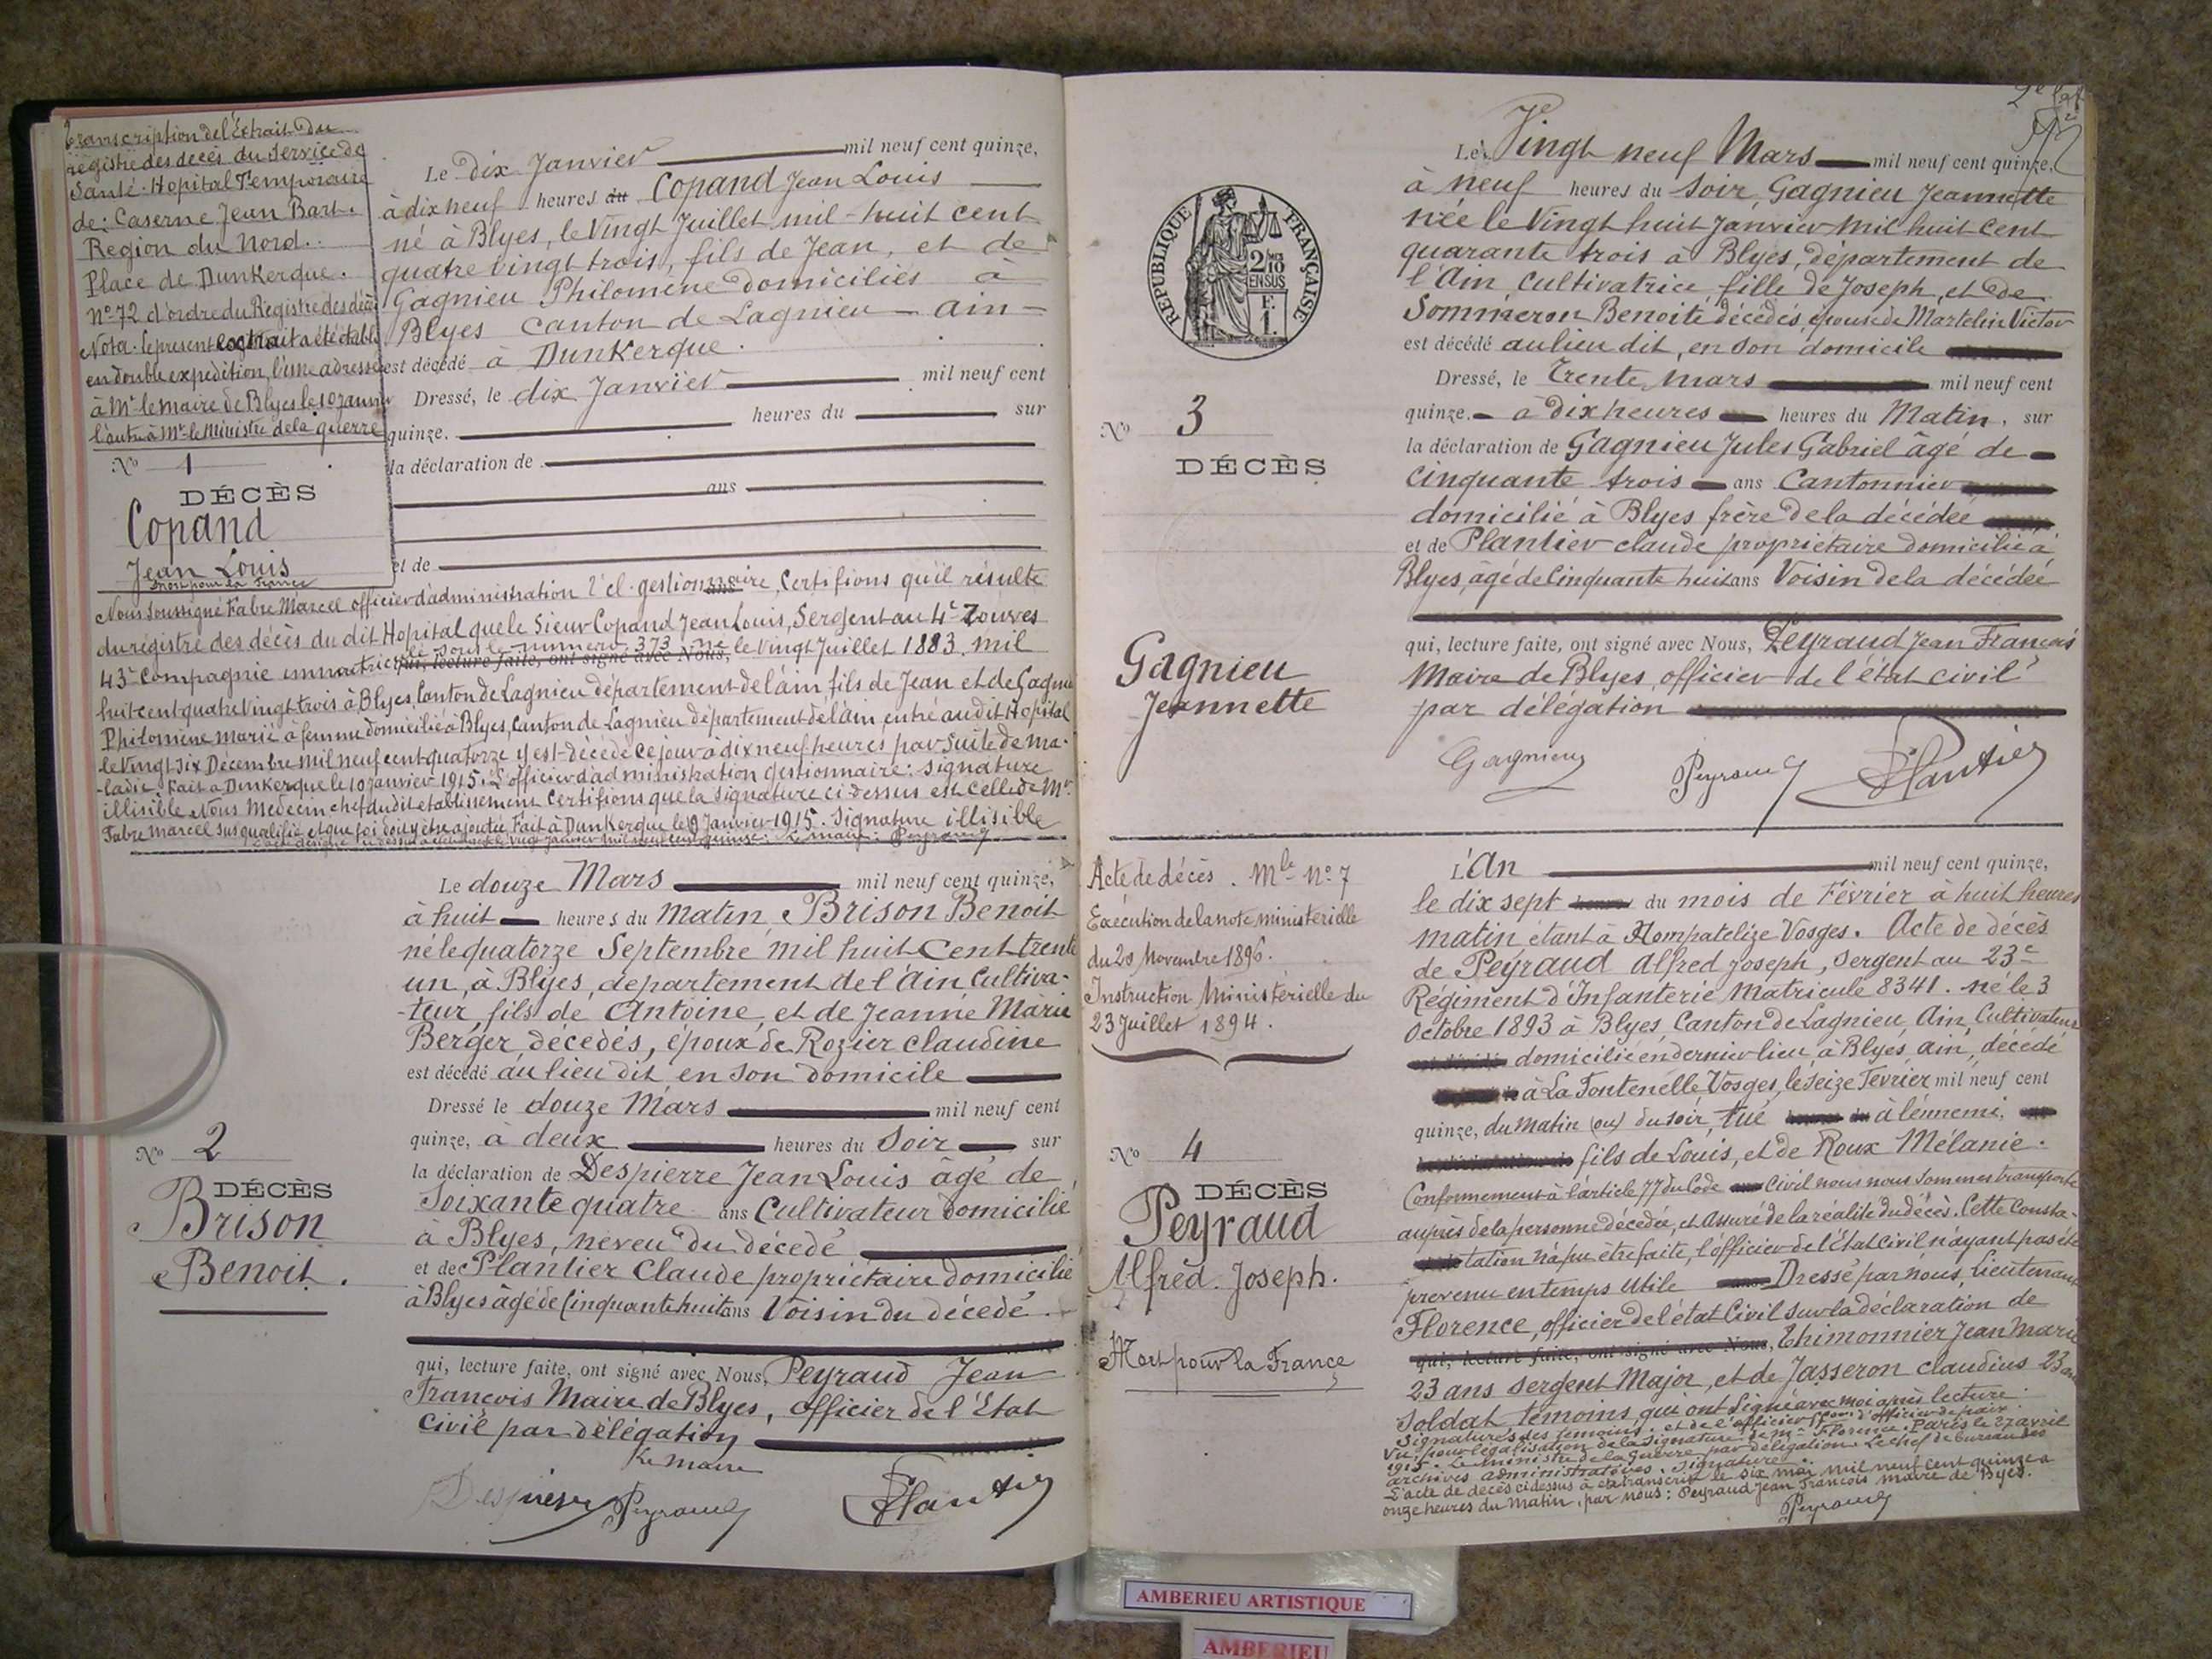 Transcription de l'Extrait du
registre des décès du Service de
Santé. Hopital Temporaire
de: Caserne Jean Bart.
Region du Nord.
Place de Dunkerque.
N° 72 d'ordre du Registre des décès
Nota. le present extrait a été établi
en double expedition, l'une adressée
à Mr le Maire de Blyes le 10 janvier
l'autre à Mr le Ministre de la guerre
N° 1
DÉCÈS
Copand
Jean Louis
Mort pour la France
Le dix Janvier mil neuf cent quinze,
à dix neuf heures du Copand Jean Louis
né à Blyes, le Vingt Juillet mil-huit cent
quatre vingt trois, fils de Jean, et de
Gagnieu Philomène domiciliés à
Blyes canton de Lagnieu - ain -
est décédé à Dunkerque.
Dressé, le dix Janvier mil neuf cent
quinze. heures du sur
la déclaration de
ans
et de
Nous soussigné Fabre Marcel officier d'administration 2e cl. gestionnaire, Certifions qu'il résulte
du registre des décès du dit Hopital que le Sieur Copand Jean Louis, Sergent au 4e Zouves
43e Compagnie immatriculé sous le numero 373 né le vingt Juillet 1883. mil
qui, lecture faite, ont signé avec Nous,
huit cent quatre vingt trois à Blyes, Canton de Lagnieu département de l'ain fils de Jean et de Gagnieu
Philomène marié à femme domicilié à Blyes, Canton de Lagnieu département de l'ain, entré au dit Hopital
le Vingt six Décembre mil neuf cent quatorze y est décédé ce jour à dix neuf heures par suite de ma-
-ladie. Fait à Dunkerque le 10 janvier 1915. L'officier d'administration gestionnaire: signature
illisible Nous Medecin chef du dit etablissement Certifions que la signature ci-dessus est celle de Mr
Fabre Marcel sus qualifié et que foi doit y être ajoutée Fait à Dunkerque le Janvier 1915. Signature illisible
Le maire: Peyraud
N° 2
DÉCÈS
Brison
Benoit.
Le douze Mars mil neuf cent quinze,
à huit heures du Matin, Brison Benoit
né le quatorze Septembre mil huit Cent trente
un, à Blyes, departement de l'Ain Cultiva-
-teur fils de Antoine, et de Jeanne Marie
Berger décédés, époux de Rozier Claudine
est décédé au lieu dit en son domicile
Dressé le douze Mars mil neuf cent
quinze, à deux heures du Soir sur
la déclaration de Despierre Jean Louis âgé de
Soixante quatre ans Cultivateur domicilié
à Blyes, neveu du décedé
et de Plantier Claude propriétaire domicilié
à Blyes âgé de Cinquante huit ans Voisin du décedé.
qui, lecture faite, ont signé avec Nous, Peyraud Jean
François Maire de Blyes, officier de l'Etat
Civil par délégation
Le Maire
Despierre Peyraud Plantier
N° 3
DÉCÈS
Gagnieu
Jeannette
REPUBLIQUE FRANÇAISE
2/10
EN SUS
Le Vingt neuf Mars mil neuf cent quinze,
à neuf heures du Soir, Gagnieu Jeannette
née le Vingt huit Janvier mil huit cent
quarante trois à Blyes, département de
l'Ain cultivatrice fille de Joseph, et de
Sommeron Benoite décédés, épouse de Martelin Victor
est décédé au lieu dit, en son domicile
Dressé, le Trente mars mil neuf cent
quinze. à Dix heures heures du Matin, sur
la déclaration de Gagnieu Jules Gabriel âgé de
cinquante trois ans Cantonnier
domicilié à Blyes frère de la décédée
et de Plantier claude propriétaire domicilié à
Blyes, âgé de Cinquante huit ans Voisin de la décédée
qui, lecture faite, ont signé avec Nous, Peyraud Jean François
Maire de Blyes, officier de l'état civil
par délégation
Gagnieu Peyraud Plantier
Acte de décès. Mle N° 7
Exécution de la note ministerielle
du 20 Novembre 1896.
Instruction Ministérielle du
23 Juillet 1894.
N° 4
DÉCÈS
Peyraud
Alfred. Joseph.
Mort pour la France
L'An mil neuf cent quinze,
le dix sept du mois de Février à huit heures
matin étant à Hompatelize Vosges. Acte de décès
de Peyraud Alfred Joseph, Sergent au 23e
Régiment d'Infanterie Matricule 8341. né le 3
Octobre 1893 à Blyes, Canton de Lagnieu, Ain, Cultivateur
domicilié en dernier lieu à Blyes, ain, décédé
à La Fontenelle Vosges, le seize Fevrier mil neuf cent
quinze, du matin (ou) du soir, tué à l'ennemi,
fils de Louis, et de Roux Mélanie.
Conformement à l'article 77 du Code Civil nous nous sommes transporté
auprès de la personne décédée, et assuré de la réalité du décès. Cette consta-
tation n'a pu être faite, l'officier de l'Etat Civil n'ayant pas été
prevenu en temps utile Dressé par nous, Lieutenant
Florence, officier de l'état Civil sur la déclaration de
qui, lecture faite, ont signé avec Nous, Thimonnier Jean Marie
23 ans Sergent Major, et de Jasseron Claudius 23 ans
Soldat témoins, qui ont Signé avec moi après lecture.
Signatures des temoins. et de l'officier
Vu pour légalisation de la Signature de Mr Florence. Paris le 27 avril
1915. Le Ministre de la Guerre par délégation. Le chef de bureau des
archives administratives. Signature.
L'acte de décès ci dessus à été transcrit le six mai mil neuf cent quinze a
onze heures du matin, par nous: Peyraud Jean François maire de Blyes.
Peyraud
AMBERIEU ARTISTIQUE
AMBERIEU